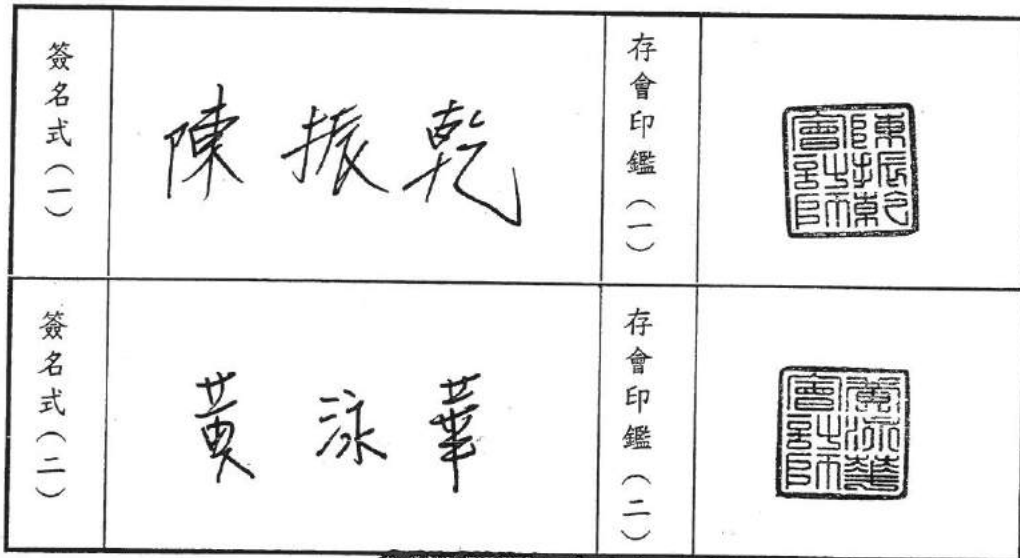 簽名式（一）
陳振乾
存會印鑑（一）
陳振乾會計師
簽名式（二）
黃泳華
存會印鑑（二）
黃泳華會計師